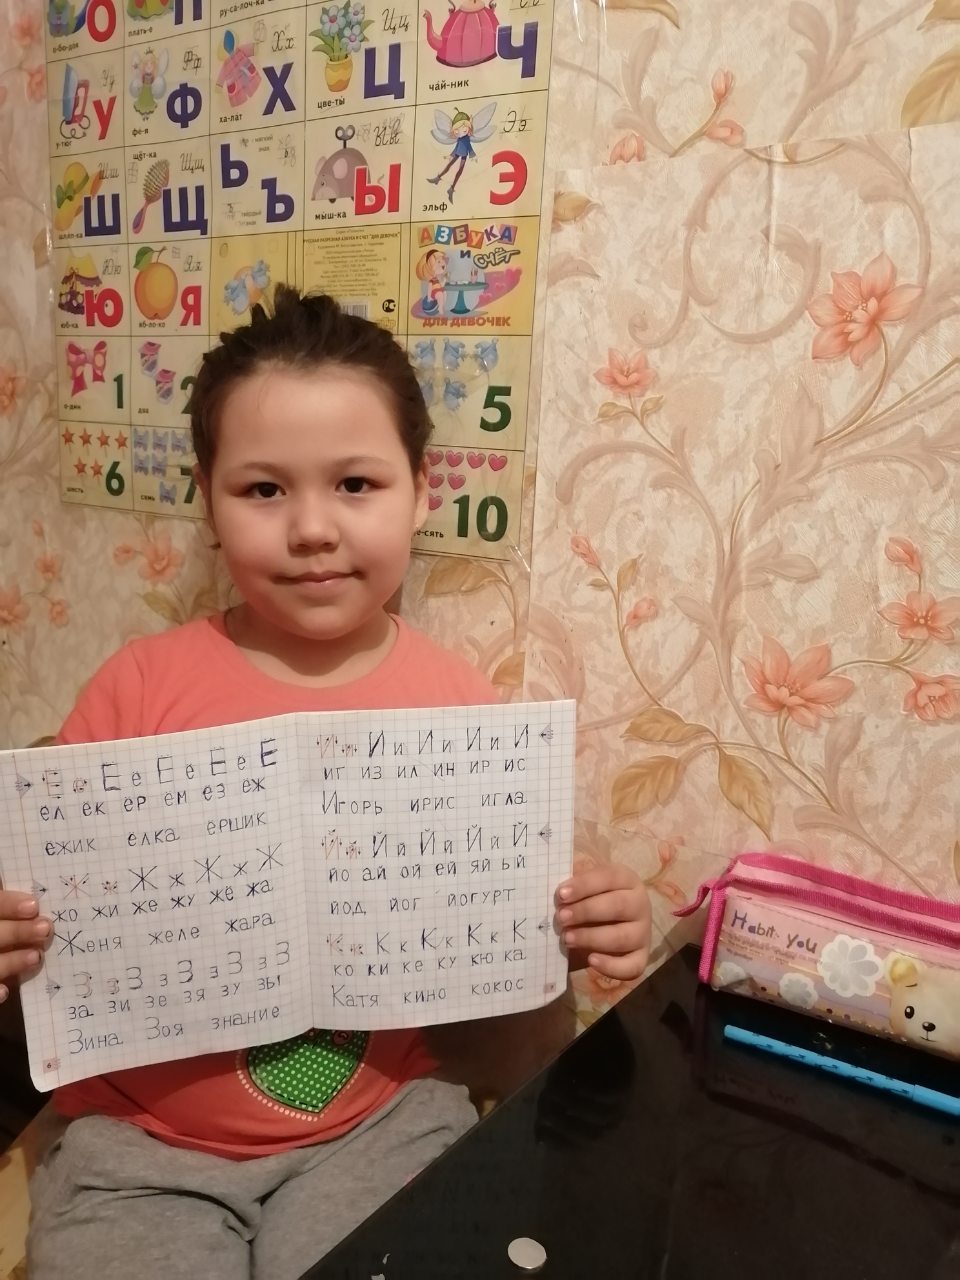 О
П
ру-са-лоч-ка
о-бу-доч
плать-е
Уу
У
у-тюг
Фф
Ф
фе-я
Хх
Х
ха-лат
Цц
Ц
цве-ты́
Ч
ча́й-ник
Шш
Ш
шляп-ка
щёт-ка
Щщ
Щ
мягкий
знак
Ь
твёрдый
Ъ
Ыы
Ы
мы́ш-ка
Ээ
Э
эльф
Юю
Ю
юб-ка
Яя
Я
яб-ло-ко
РУССКАЯ РАЗРЕЗНАЯ АЗБУКА И СЧЕТ "ДЛЯ ДЕВОЧЕК"
АЗБУКА
И
СЧЁТ
ДЛЯ ДЕВОЧЕК
о-дин
1
два
2
5
шесть
6
семь
7
-сять
10
Е е Е е Е е Е е Е
ел ек ер ем ез еж
ежик елка ершик
Ж ж Ж ж Ж ж Ж
жо жи же жу жё жа
Женя желе жара
З з З з З з З з З
за зи зе зя зу зы
Зина Зоя знание
6
И и И и И и И и И
иг из ил ин ир ис
Игорь ирис игла
Й й Й й Й й Й й Й
йо ай ой ей яй ый
йод йог йогурт
К к К к К к К к К
ко ки ке ку кю ка
Катя кино кокос
Habit you